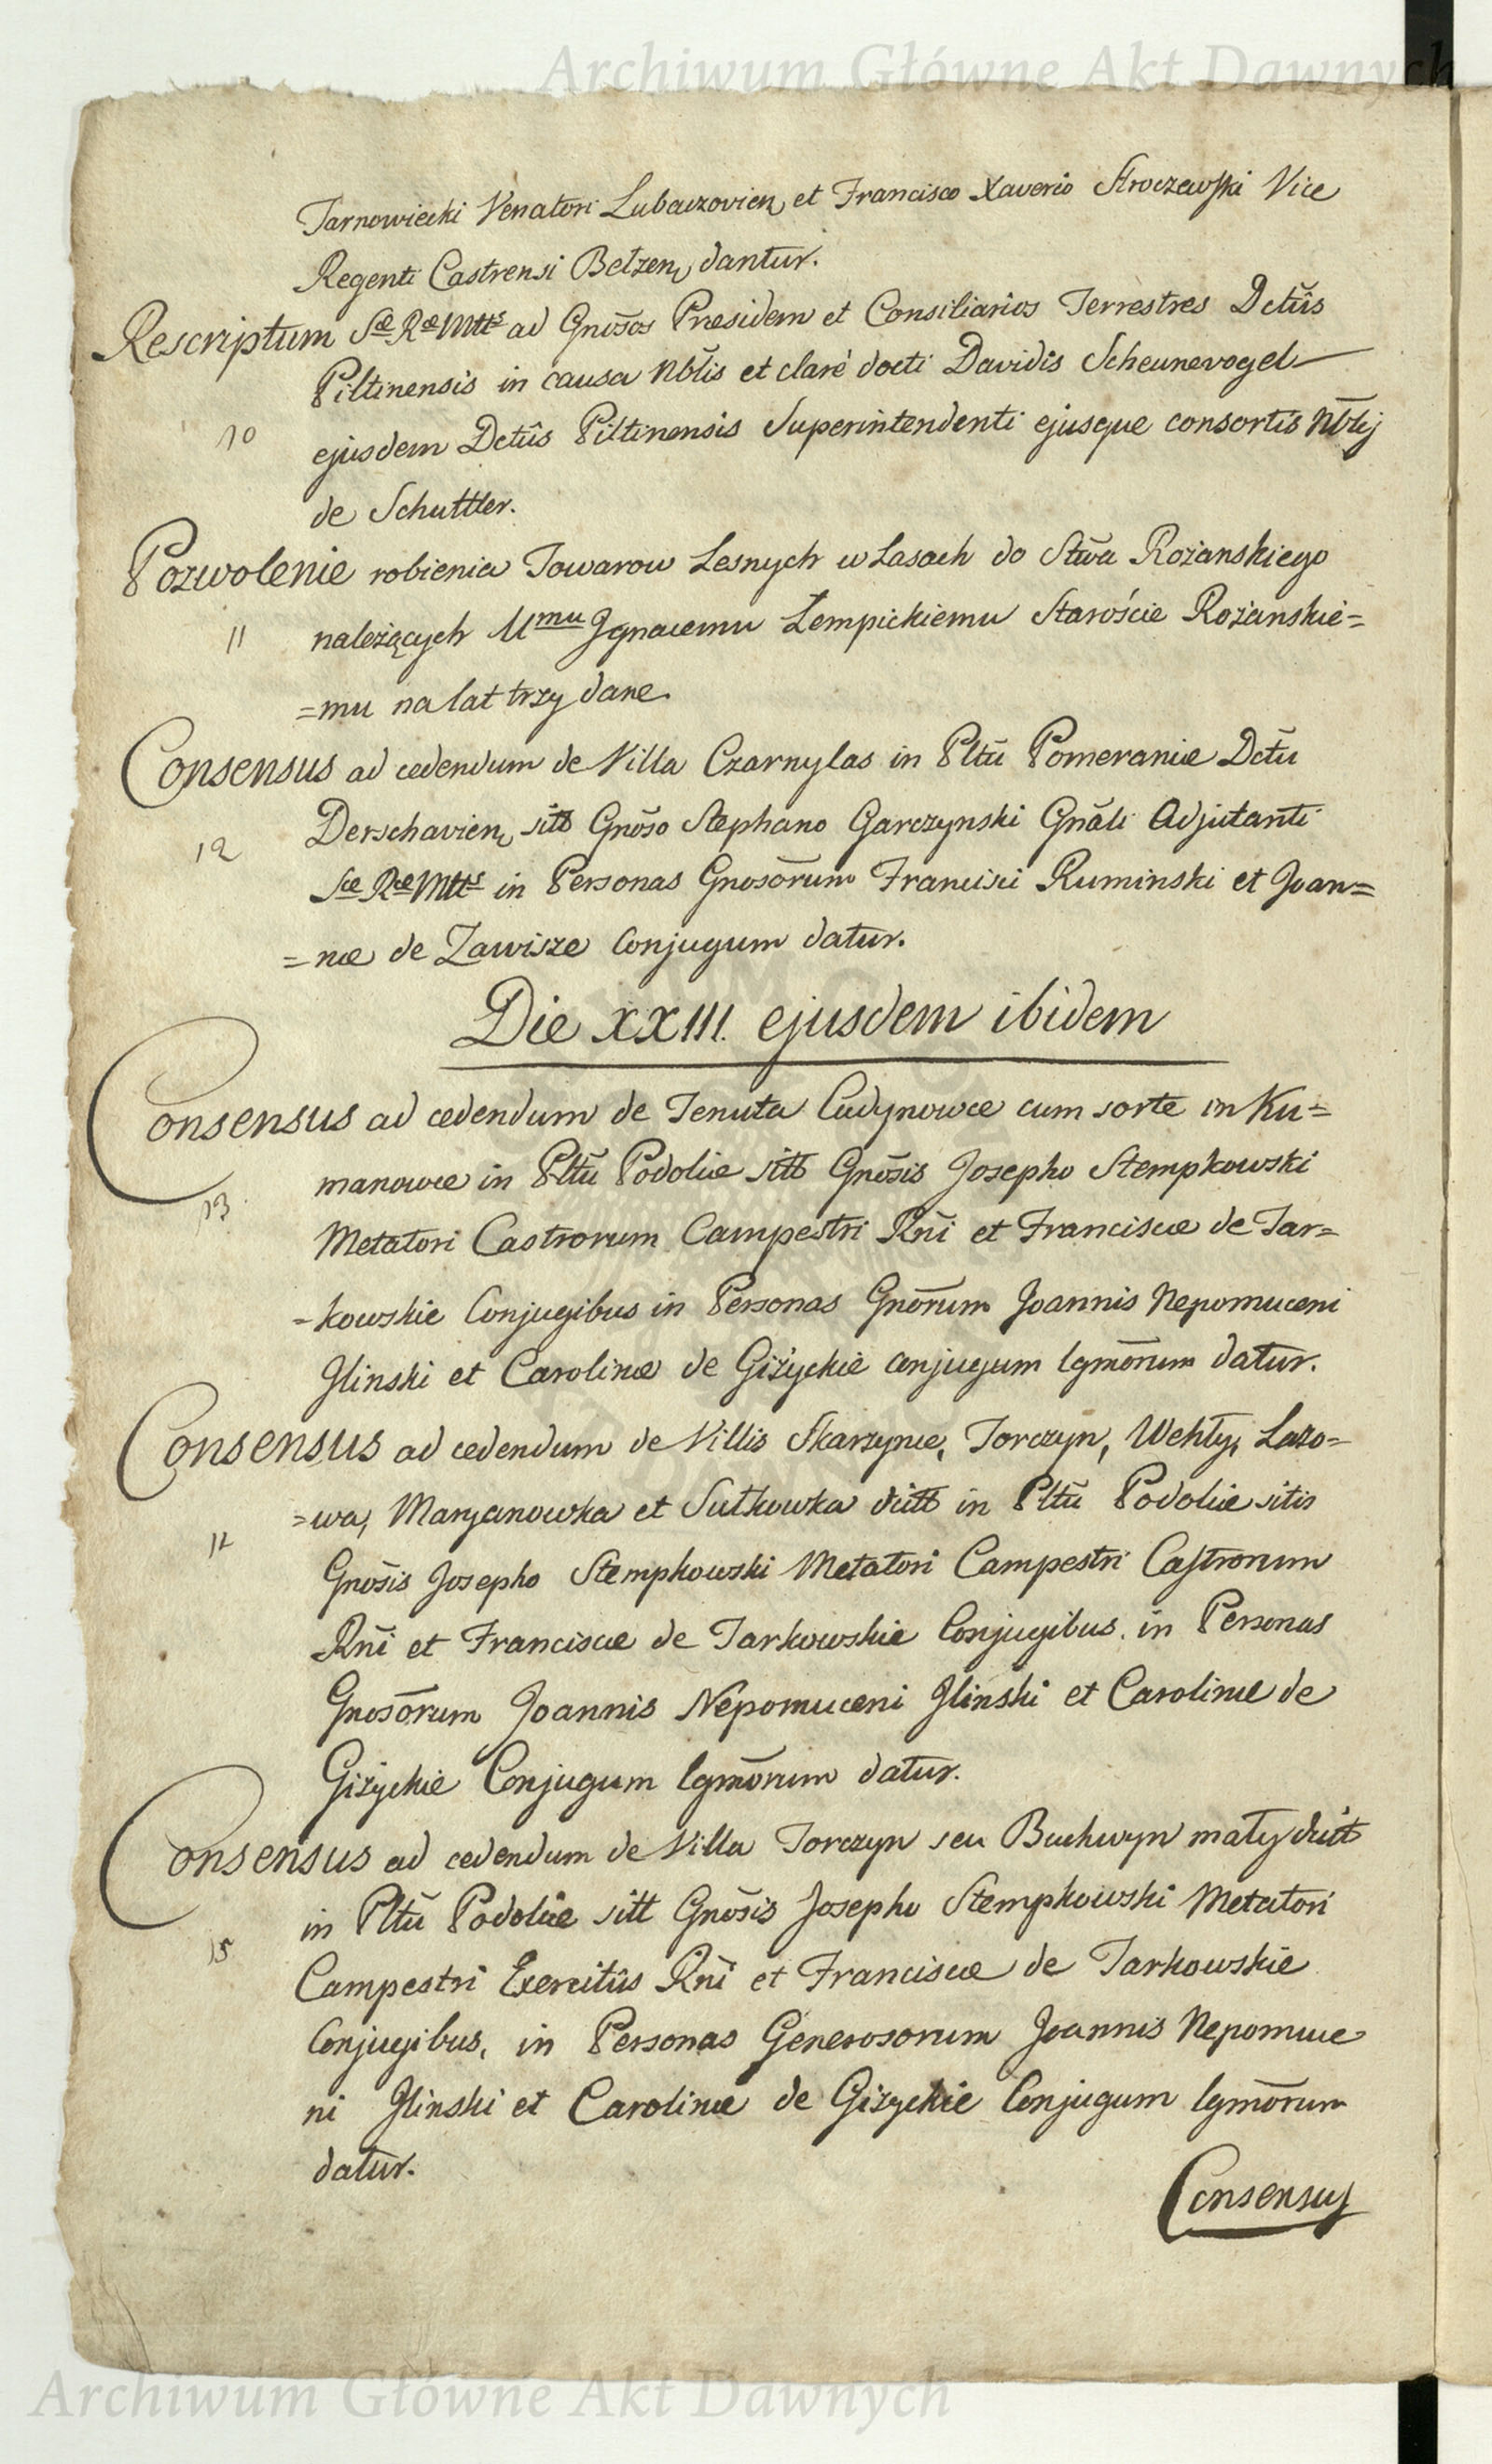 Archiwum Główne Akt Dawnych
Tarnowiecki Venatori Lubaczovien, et Francisco Xaverio Stroczewski Vice
Regenti Castrensi Belzen, dantur.
Rescriptum Sæ Ræ Mttis ad Gnõsos Præsidem et Consiliarios Terrestres Dctũs
Piltinensis in causa Nblis et clarè docti Davidis Scheunevogel
10
ejusdem Dctûs Piltinensis Superintendenti ejusque consortis Nblij
de Schuttler.
Pozwolenie robienia Towarow Lesnych w Lasach do Stwa Rożanskiego
11
należących Umu Jgnacemu Łempickiemu Staroście Rożanskie=
=mu na lat trzy dane.
Consensus ad cedendum de Villa Czarnylas in Pltũ Pomeraniæ Dctũ
12
Derschavien, sitt Gnõso Stephano Garczynski Gnãli Adjutanti
Sæ Ræ Mttis in Personas Gnosõrum Francisci Ruminski et Joan=
=næ de Zawisze Conjugum datur.
Die XXIII. ejusdem ibidem
Consensus ad cedendum de Tenuta Cudynowce cum sorte in Ku=
13
manowce in Pltũ Podoliæ sitt Gnõsis Josepho Stempkowski
Metatori Castrorum Campestri Rñi et Franciscæ de Tar=
-kowskie Conjugibus in Personas Gnõrum Joannis Nepomuceni
Jlinski et Carolinæ de Giżyckie conjugum lgmõrum datur.
Consensus ad cedendum de Villis Skarzynce, Torczyn, Wehły, Lazo=
=wa, Maryanowka et Sutkowka dictt in Pltũ Podoliæ sitis
14
Gnõsis Josepho Stempkowski Metatori Campestri Castrorum
Rñi et Franciscæ de Tarkowskie Conjugibus in Personas
Gnosõrum Joannis Nepomuceni Jlinski et Carolinæ de
Giżyckie Conjugum lgmõrum datur.
Consensus ad cedendum de Villa Torczyn seu Buchwyn mały dictt
in Pltũ Podoliæ sitt Gnõsis Josepho Stempkowski Metatori
15
Campestri Exercitûs Rñi et Franciscæ de Tarkowskie
Conjugibus, in Personas Generosorum Joannis Nepomuce
ni Jlinski et Carolinæ de Gizyckie Conjugum lgmõrum
datur.
Consensus
Archiwum Główne Akt Dawnych